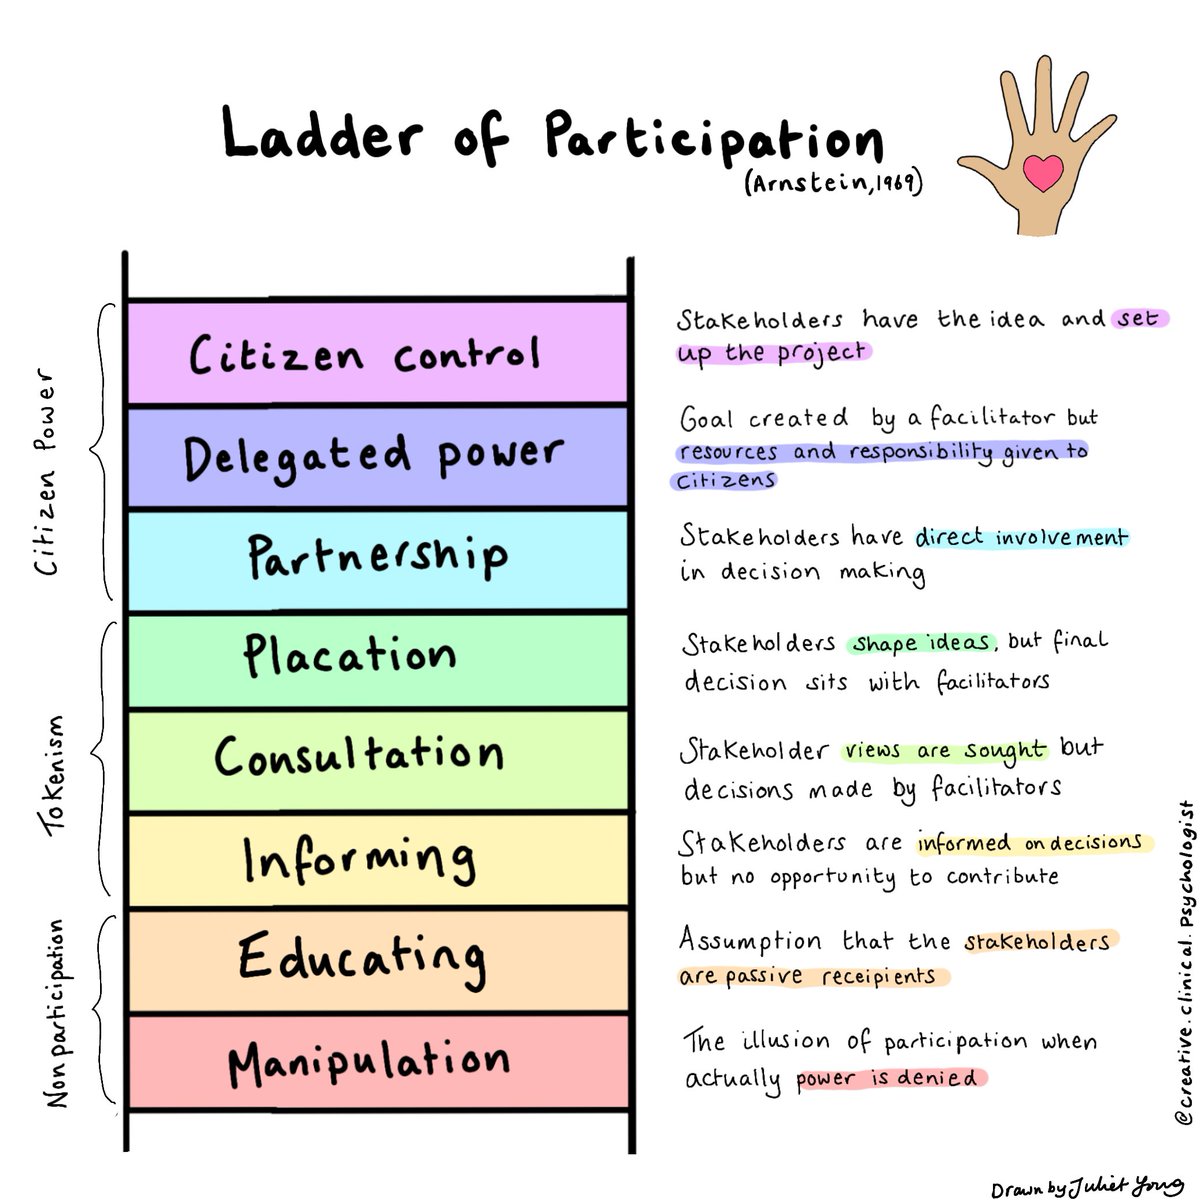 Ladder of Participation
(Arnstein, 1969)
Citizen Power
Citizen control
Stakeholders have the idea and set
up the project
Delegated power
Goal created by a facilitator but
resources and responsibility given to
citizens
Partnership
Stakeholders have direct involvement
in decision making
Tokenism
Placation
Stakeholders shape ideas, but final
decision sits with facilitators
Consultation
Stakeholder views are sought but
decisions made by facilitators
Informing
Stakeholders are informed on decisions
but no opportunity to contribute
Nonparticipation
Educating
Assumption that the stakeholders
are passive receipients
Manipulation
The illusion of participation when
actually power is denied
@creative.clinical.psychologist
Drawn by Juliet Young